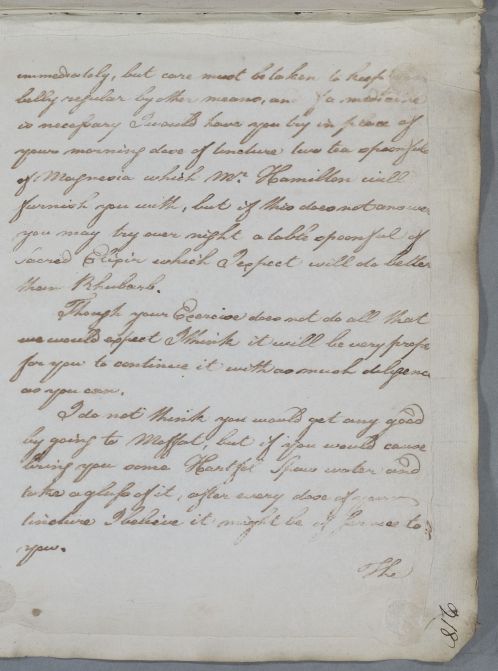 immediately, but care must be taken to keep your
belly regular by other means, and if a medicine
is necessary I would have you try in place of
your morning dose of tincture two tea spoonfuls
of Magnesia which Mr. Hamilton will
furnish you with, but if this does not answer
you may try over night a table spoonful of
Sacred Elixir which I expect will do better
than Rhubarb.
Though your Exercise does not do all that
we would expect I think it will be very proper
for you to continue it with as much diligence
as you can.
I do not think you would get any good
by going to Moffat, but if you would cause
bring you some Hartfel Spaw water and
take a glass of it, after every dose of your
tincture I believe it might be of service to
you.
The
218